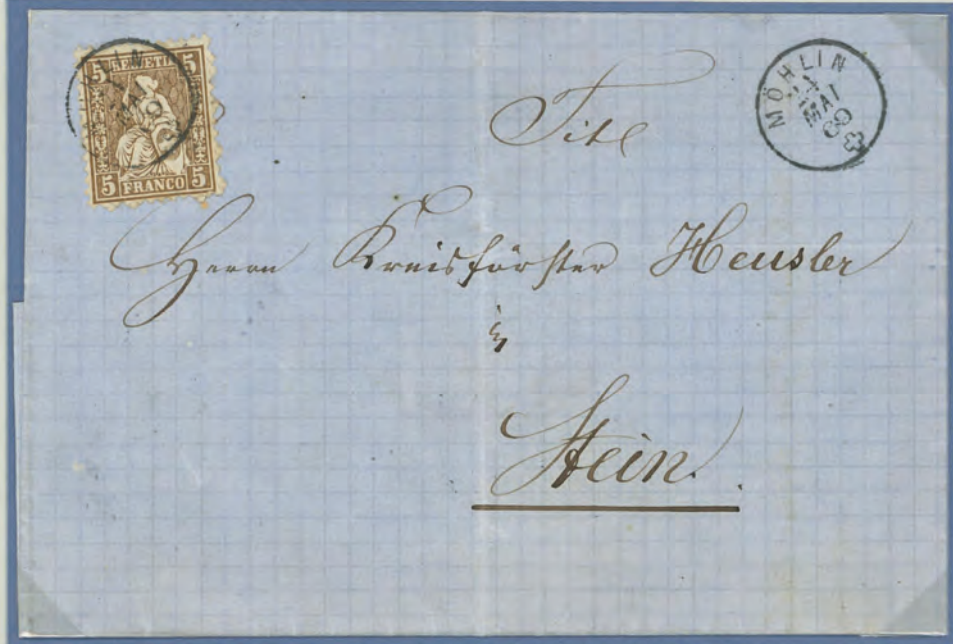 HELVETIA
5 5
5 FRANCO 5
MAI
MÖHLIN
MAI
69
Herrn Kreisförster Heusler
in
Stein.